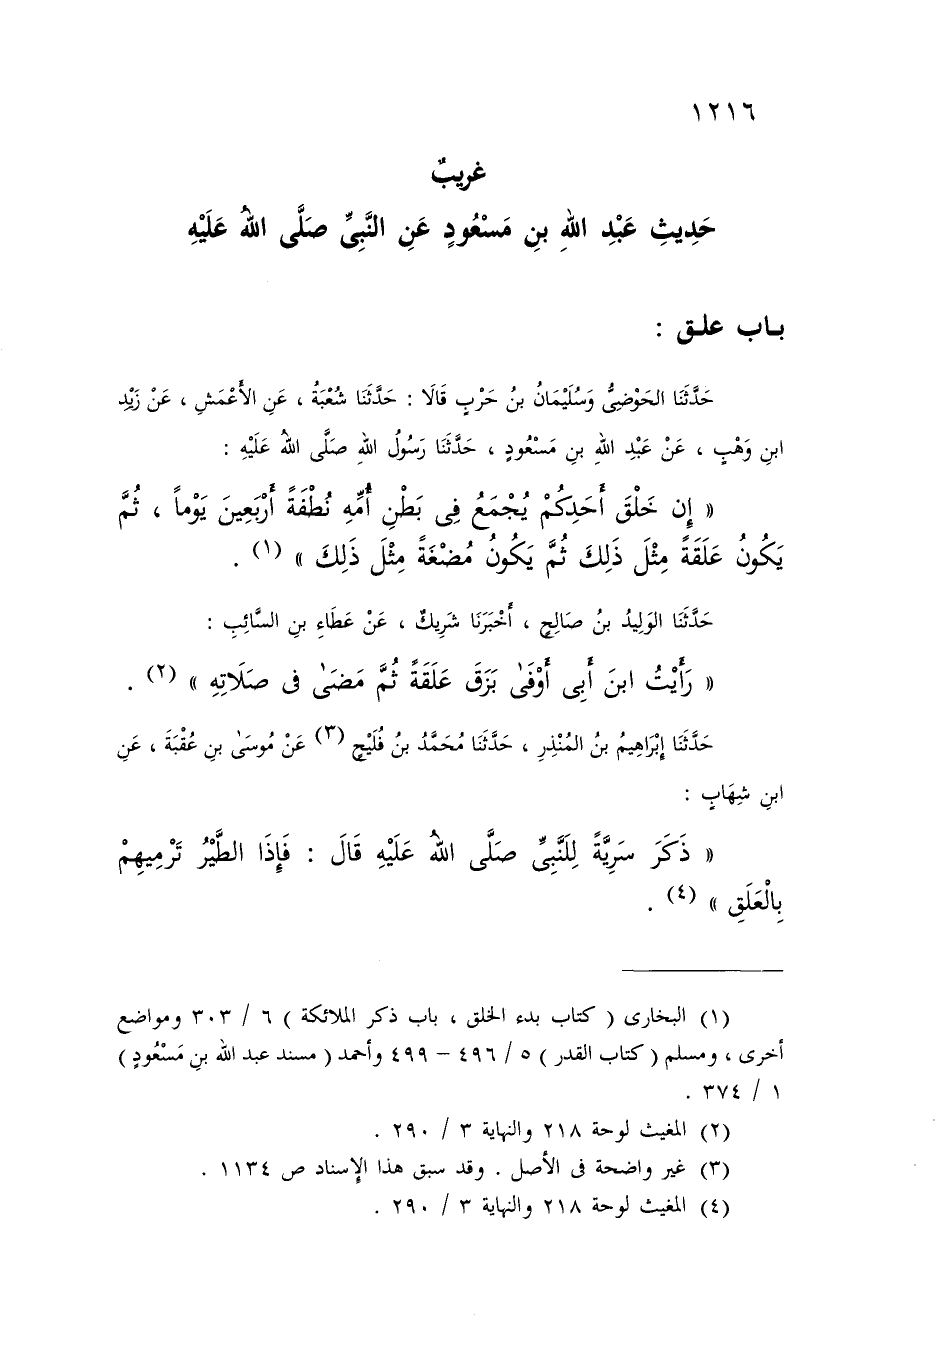 ١٢١٦
غريبٌ
حَدِيثِ عَبْدِ اللهِ بنِ مَسْعُودٍ عَنِ النَّبِىِّ صَلَّى اللهُ عَلَيْهِ
بـاب علـق :
حَدَّثَنَا الحَوْضِىُّ وَسُلَيْمَانُ بنُ حَرْبٍ قَالَا : حَدَّثَنَا شُعْبَةُ ، عَنِ الأَعْمَشِ ، عَنْ زَيْدِ
ابنِ وَهْبٍ ، عَنْ عَبْدِ اللهِ بنِ مَسْعُودٍ ، حَدَّثَنَا رَسُولُ اللهِ صَلَّى اللهُ عَلَيْهِ :
« إِن خَلْقَ أَحَدِكُمْ يُجْمَعُ فِى بَطْنِ أُمِّهِ نُطْفَةً أَرْبَعِينَ يَوْماً ، ثُمَّ
يَكُونُ عَلَقَةً مِثْلَ ذَلِكَ ثُمَّ يَكُونُ مُضْغَةً مِثْلَ ذَلِكَ » (١) .
حَدَّثَنَا الوَلِيدُ بنُ صَالِحٍ ، أَخْبَرَنَا شَرِيكٌ ، عَنْ عَطَاءِ بنِ السَّائِبِ :
« رَأَيْتُ ابنَ أَبِى أَوْفَىٰ بَزَقَ عَلَقَةً ثُمَّ مَضَىٰ فى صَلَاتِهِ » (٢) .
حَدَّثَنَا إِبْرَاهِيمُ بنُ المُنْذِرِ ، حَدَّثَنَا مُحَمَّدُ بنُ فُلَيْحٍ (٣) عَنْ مُوسَىٰ بنِ عُقْبَةَ ، عَنِ
ابنِ شِهَابٍ :
« ذَكَرَ سَرِيَّةً لِلَنَّبِىِّ صَلَّى اللهُ عَلَيْهِ قَالَ : فَإِذَا الطَّيْرُ تَرْمِيهِمْ
بِالْعَلَقِ » (٤) .
(١) البخارى ( كتاب بدء الخلق ، باب ذكر الملائكة ) ٦ / ٣٠٣ ومواضع
أخرى ، ومسلم ( كتاب القدر ) ٥ / ٤٩٦ – ٤٩٩ وأحمد ( مسند عبد الله بنِ مَسْعُودٍ )
١ / ٣٧٤ .
(٢) المغيث لوحة ٢١٨ والنهاية ٣ / ٢٩٠ .
(٣) غير واضحة فى الأصل . وقد سبق هذا الإسناد ص ١١٣٤ .
(٤) المغيث لوحة ٢١٨ والنهاية ٣ / ٢٩٠ .